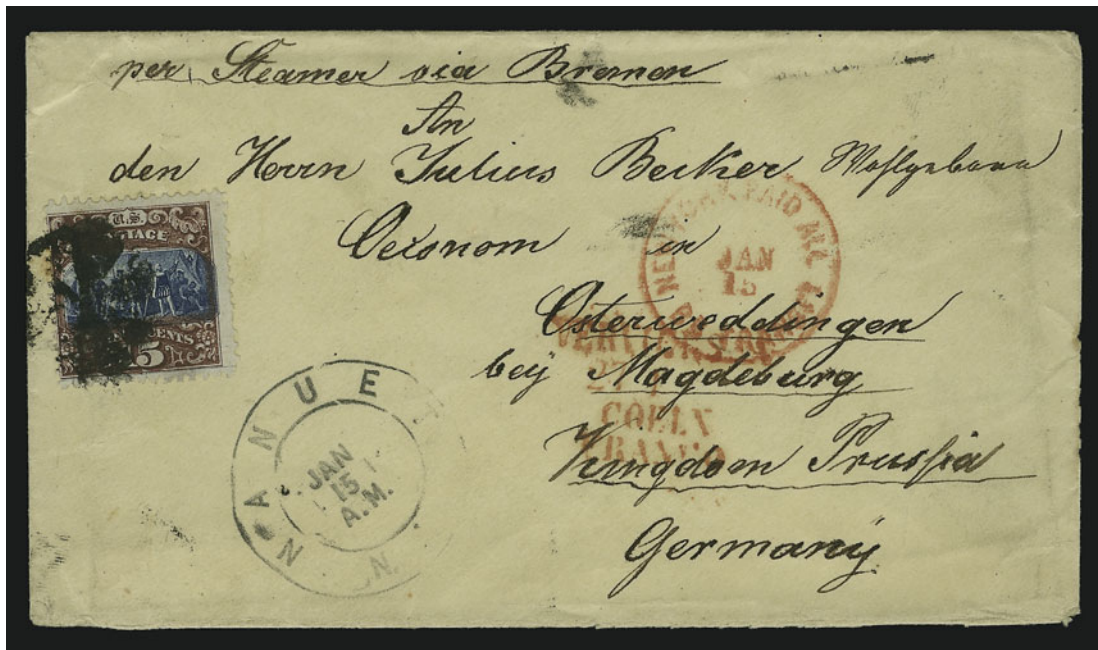 per Steamer via Bremen
An
den Herrn Julius Becker Wohlgeboren
Oeconom in
Osterweddingen
bey Magdeburg
Kingdoem Prussia
Germany
U.S.
POSTAGE
CENTS
15
NEW YORK PAID ALL
JAN
15
COELN
FRANCO
N A N U E
JAN
15
A.M.
N.